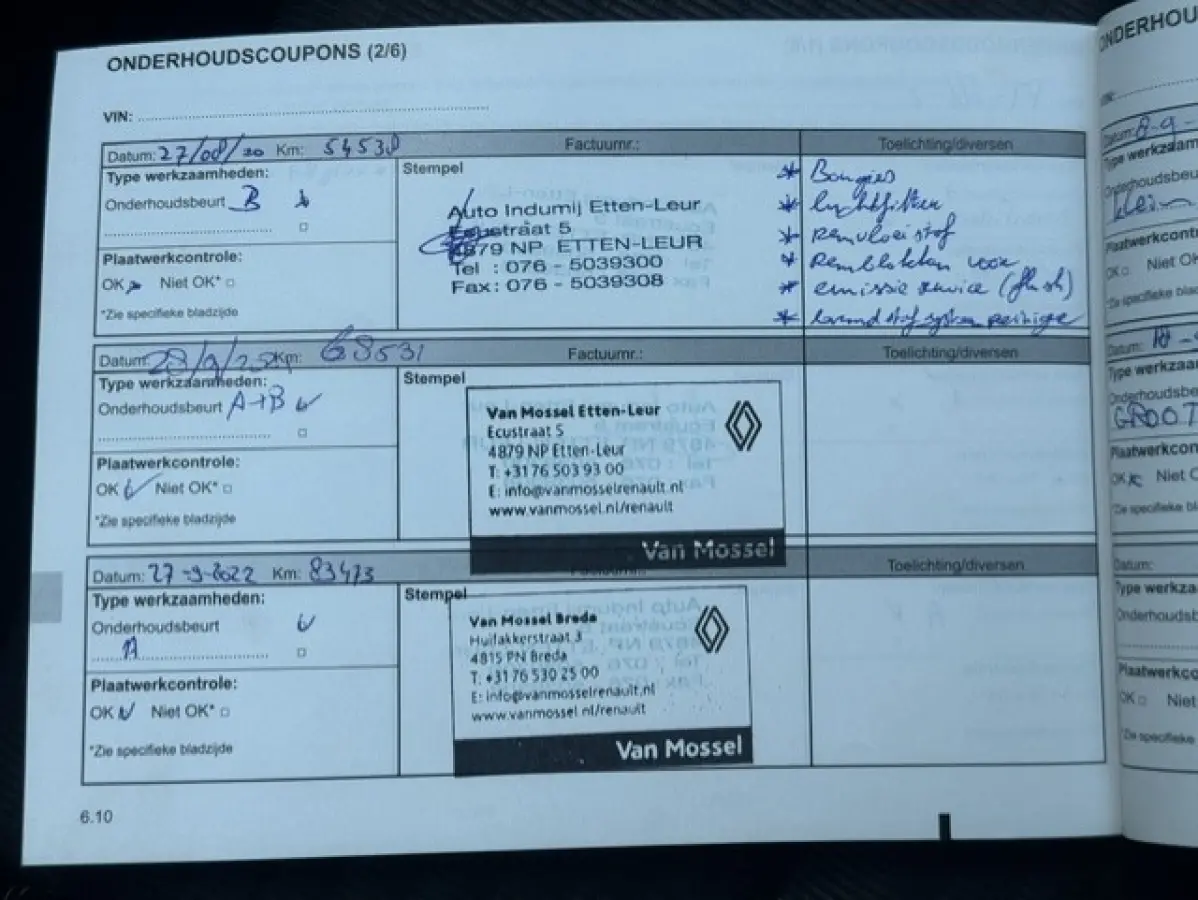 ONDERHOUDSCOUPONS (2/6)
VIN:
Datum: 27/08/20 Km: 54538 Factuurnr.: Toelichting/diversen
Type werkzaamheden:
Onderhoudsbeurt B
Plaatwerkcontrole:
OK Niet OK*
*Zie specifieke bladzijde
Stempel
Auto Indumij Etten-Leur
Ecustraat 5
4879 NP ETTEN-LEUR
Tel : 076 - 5039300
Fax: 076 - 5039308
* Bougies
* luchtfilter
* remvloeistof
* remblokken voor
* emissie service (flush)
* brandstofsysteem
Datum: Km: 68531 Factuurnr.: Toelichting/diversen
Type werkzaamheden:
Onderhoudsbeurt A+B
Plaatwerkcontrole:
OK Niet OK*
*Zie specifieke bladzijde
Stempel
Van Mossel Etten-Leur
Ecustraat 5
4879 NP Etten-Leur
T: +31 76 503 93 00
E: info@vanmosselrenault.nl
www.vanmossel.nl/renault
Van Mossel
Datum: 27-9-2022 Km: 83473 Toelichting/diversen
Type werkzaamheden:
Onderhoudsbeurt
A
Plaatwerkcontrole:
OK Niet OK*
*Zie specifieke bladzijde
Stempel
Van Mossel Breda
Huifakkerstraat 3
4815 PN Breda
T: +31 76 530 25 00
E: info@vanmosselrenault.nl
www.vanmossel.nl/renault
Van Mossel
6.10
ONDERHOU
Datum: 8-9-
Type werkzaam
Onderhoudsbeu
klein
Plaatwerkcontr
OK Niet OK
*Zie specifieke bl
Datum:
Type werkzaa
Onderhoudsbe
GROOT
Plaatwerkcon
OK Niet
*Zie specifieke bl
Datum:
Type werkza
Onderhoudsb
Plaatwerkco
OK Niet
*Zie specifieke